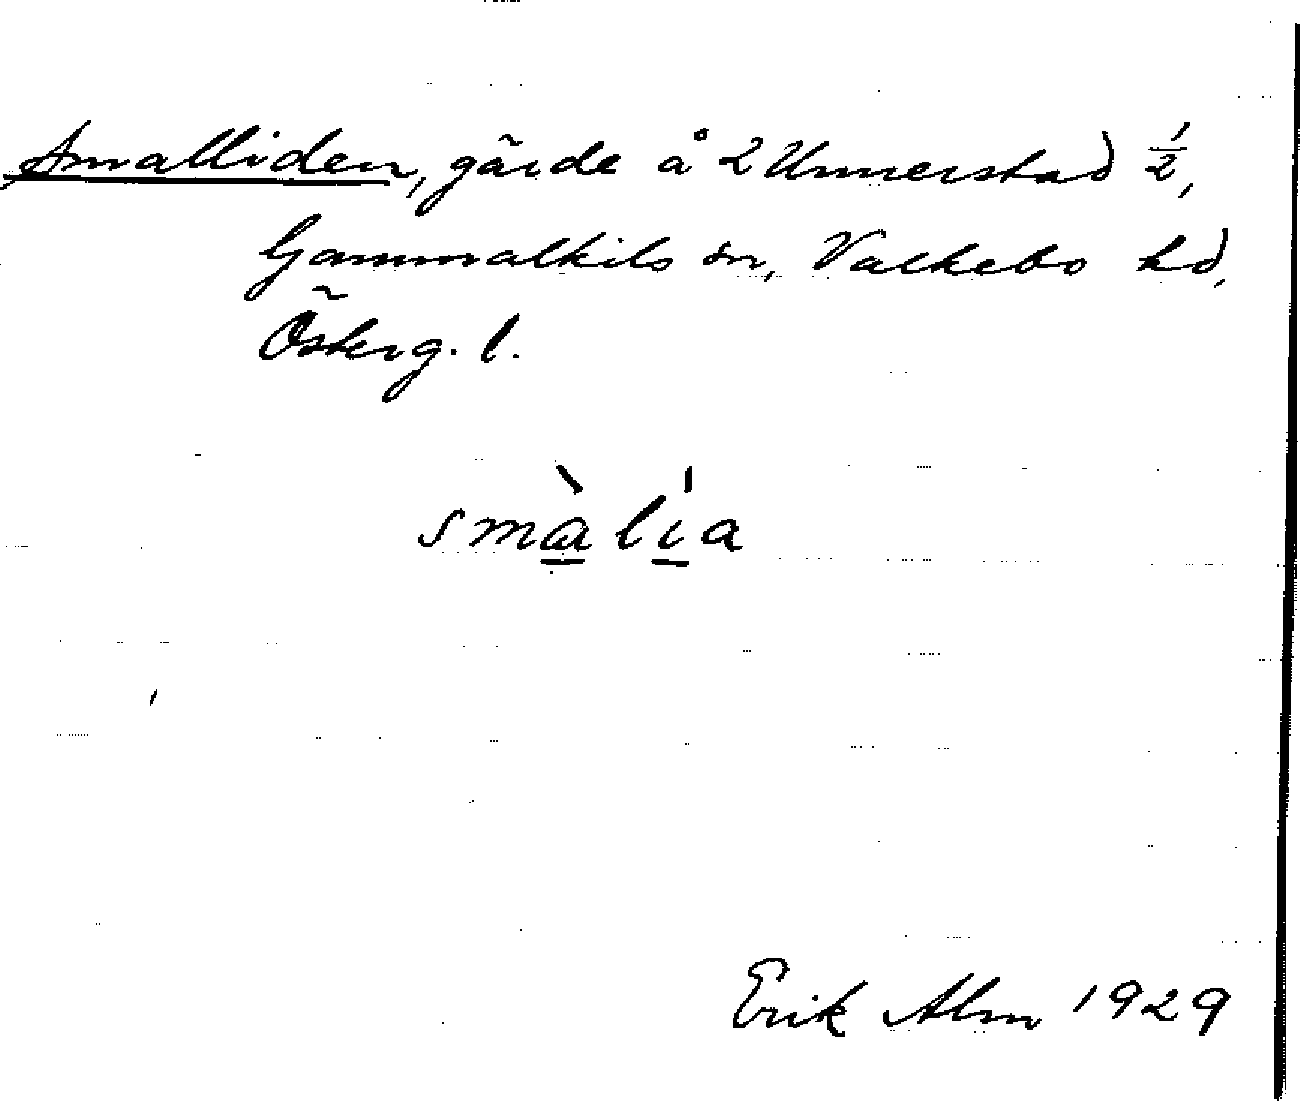 Smalliden, gärde å 2 Unnerstad 1/2,
Gammalkils sn, Valkebo hd,
Österg. l.
smàlía
Erik Alm 1929